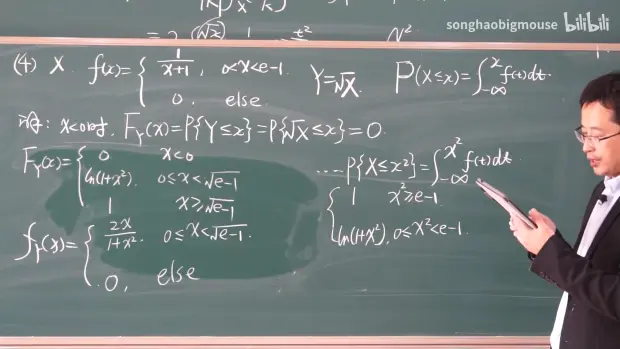 songhaobigmouse bilibili
(4) X. f(x)={ 1/(x+1), 0<x<e-1. Y=√X. P(X≤x)=∫_{-∞}^{x} f(t)dt.
0, else
x<0时, F_Y(x)=P{Y≤x}=P{√X≤x}=0.
F_Y(x)={ 0 x<0
ln(1+x²), 0≤x<√(e-1)
1 x≥√(e-1)
....P{X≤x²}=∫_{-∞}^{x²} f(t)dt
{ 1 x²≥e-1
ln(1+x²), 0≤x²<e-1.
f_Y(x)={ 2x/(1+x²). 0≤x<√(e-1).
0, else